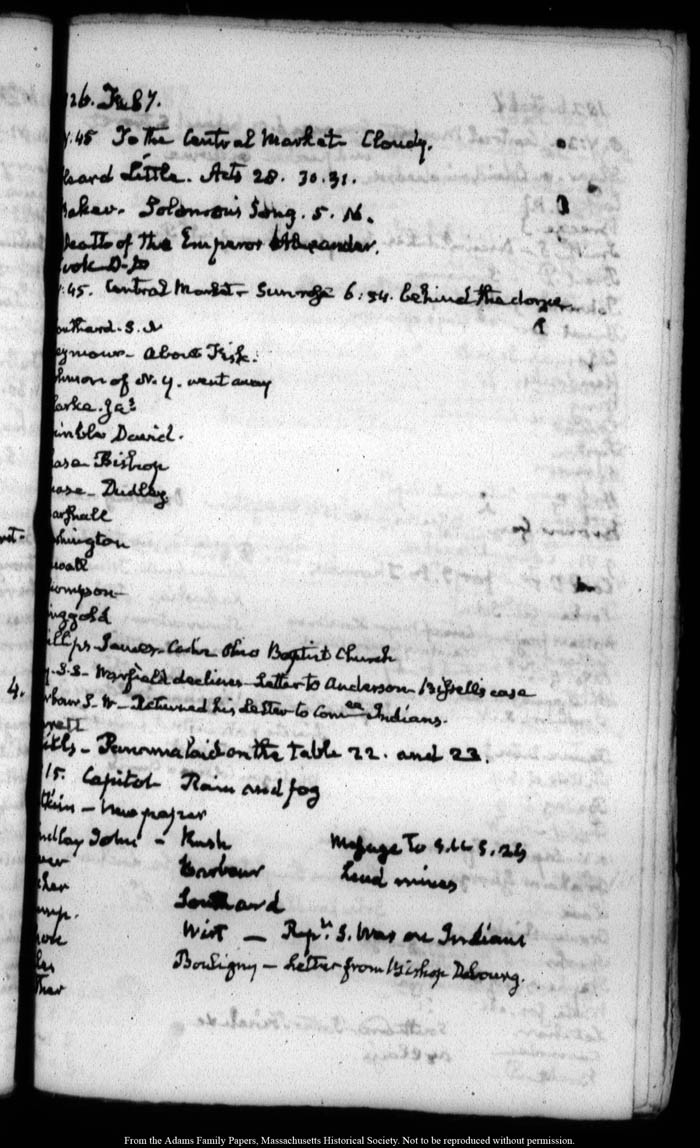 26. Feby.
:45 To the Central Market. Cloudy.
Little. Acts 28. 30. 31.
Solomon's Song. 5. 16.
Death of the Emperor Alexander.
:45. Central Market. Sunrise 6:54. behind the dome
outhard. S.
eymour. About Fisk.
ohnson of N.Y. went away
larke. Jas
imble David.
ase Bishop
hase. Dudley
arshall
ret-
shington
ewall
hompson
inggold
illips James. Ohio Baptist Church
4.
S.S. Warfield declines. Letter to Anderson. Bissell's case
rbour S. W. Returned his Letter to Comee Indians.
rrell
Panama laid on the table 22. and 23.
15. Capitol Rain and fog
tkin — Newspaper
indlay John — Rush Message to S. U.S. 26
Barbour Lead mines
Southard
Wirt — Rept. S. War on Indians
Bouligny — Letter from Bishop Dubourg.
From the Adams Family Papers, Massachusetts Historical Society. Not to be reproduced without permission.